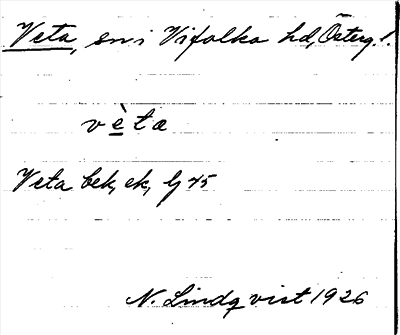 Veta, sn i Vifolka hd, Österg. l.
vèta
Veta bek, ek, bl 45
N. Lindqvist 1926